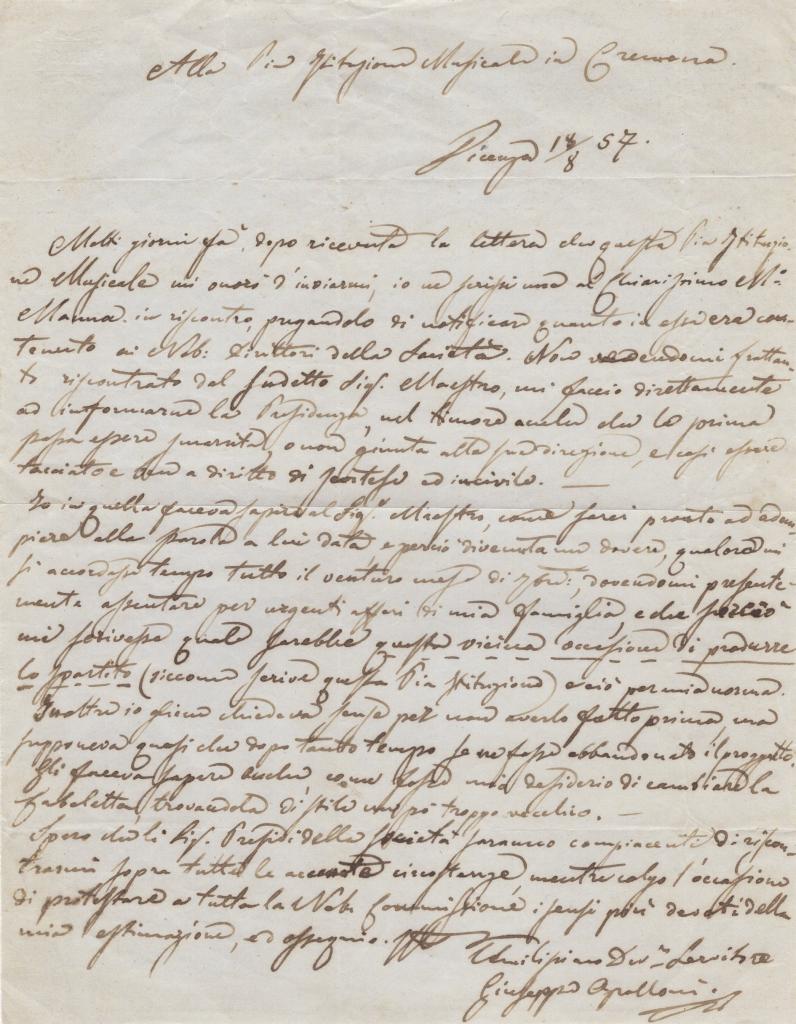 Alla Pia Istituzione Musicale in Cremona.
Vicenza 18/8 57.
Molti giorni fà, dopo ricevuta la lettera che questa Pia Istituzio-
ne Musicale mi onorò d'inviarmi, io ne scrissi una al Chiarissimo M.o
Manna in riscontro, pregandolo di notificare quanto in essa era con-
tenuto ai Nob: Direttori della Società. Non vedendomi frattan-
to riscontrato dal sudetto Sig. Maestro, mi faccio direttamente
ad informarne la Presidenza, nel timore anche che la prima
possa essere smarrita, o non giunta alla sua direzione, e così essere
tacciato e con a diritto di scortese ed incivile. —
Io in quella faceva sapere al Sig.r Maestro, come sarei pronto ad adem-
piere alla parola a lui data e perciò divenuta un dovere, qualora mi
si accordasse tempo tutto il venturo mese di 7bre:, dovendomi presente-
mente assentare per urgenti affari di mia famiglia, e che perciò
mi scrivesse quale sarebbe questa vicina occasione di produrre
lo spartito (siccome scrive questa Pia Istituzione) e ciò per mia norma.
Inoltre io gliene chiedeva scusa per non averlo fatto prima, ma
supponeva quasi che dopo tanto tempo se ne fosse abbandonato il progetto.
Gli faceva sapere anche come fosse mio desiderio di cambiare la
Cabaletta, trovandola di stile un pò troppo vecchio. —
Spero che li Sig. Presidi della Società saranno compiacenti di riscon-
trarmi sopra tutte le circostanze, mentre colgo l'occasione
di protestare a tutta la Nob. Commissione i sensi più devoti della
mia estimazione, ed ossequio.
Umilissimo Dev.mo Servitore
Giuseppe Apolloni.